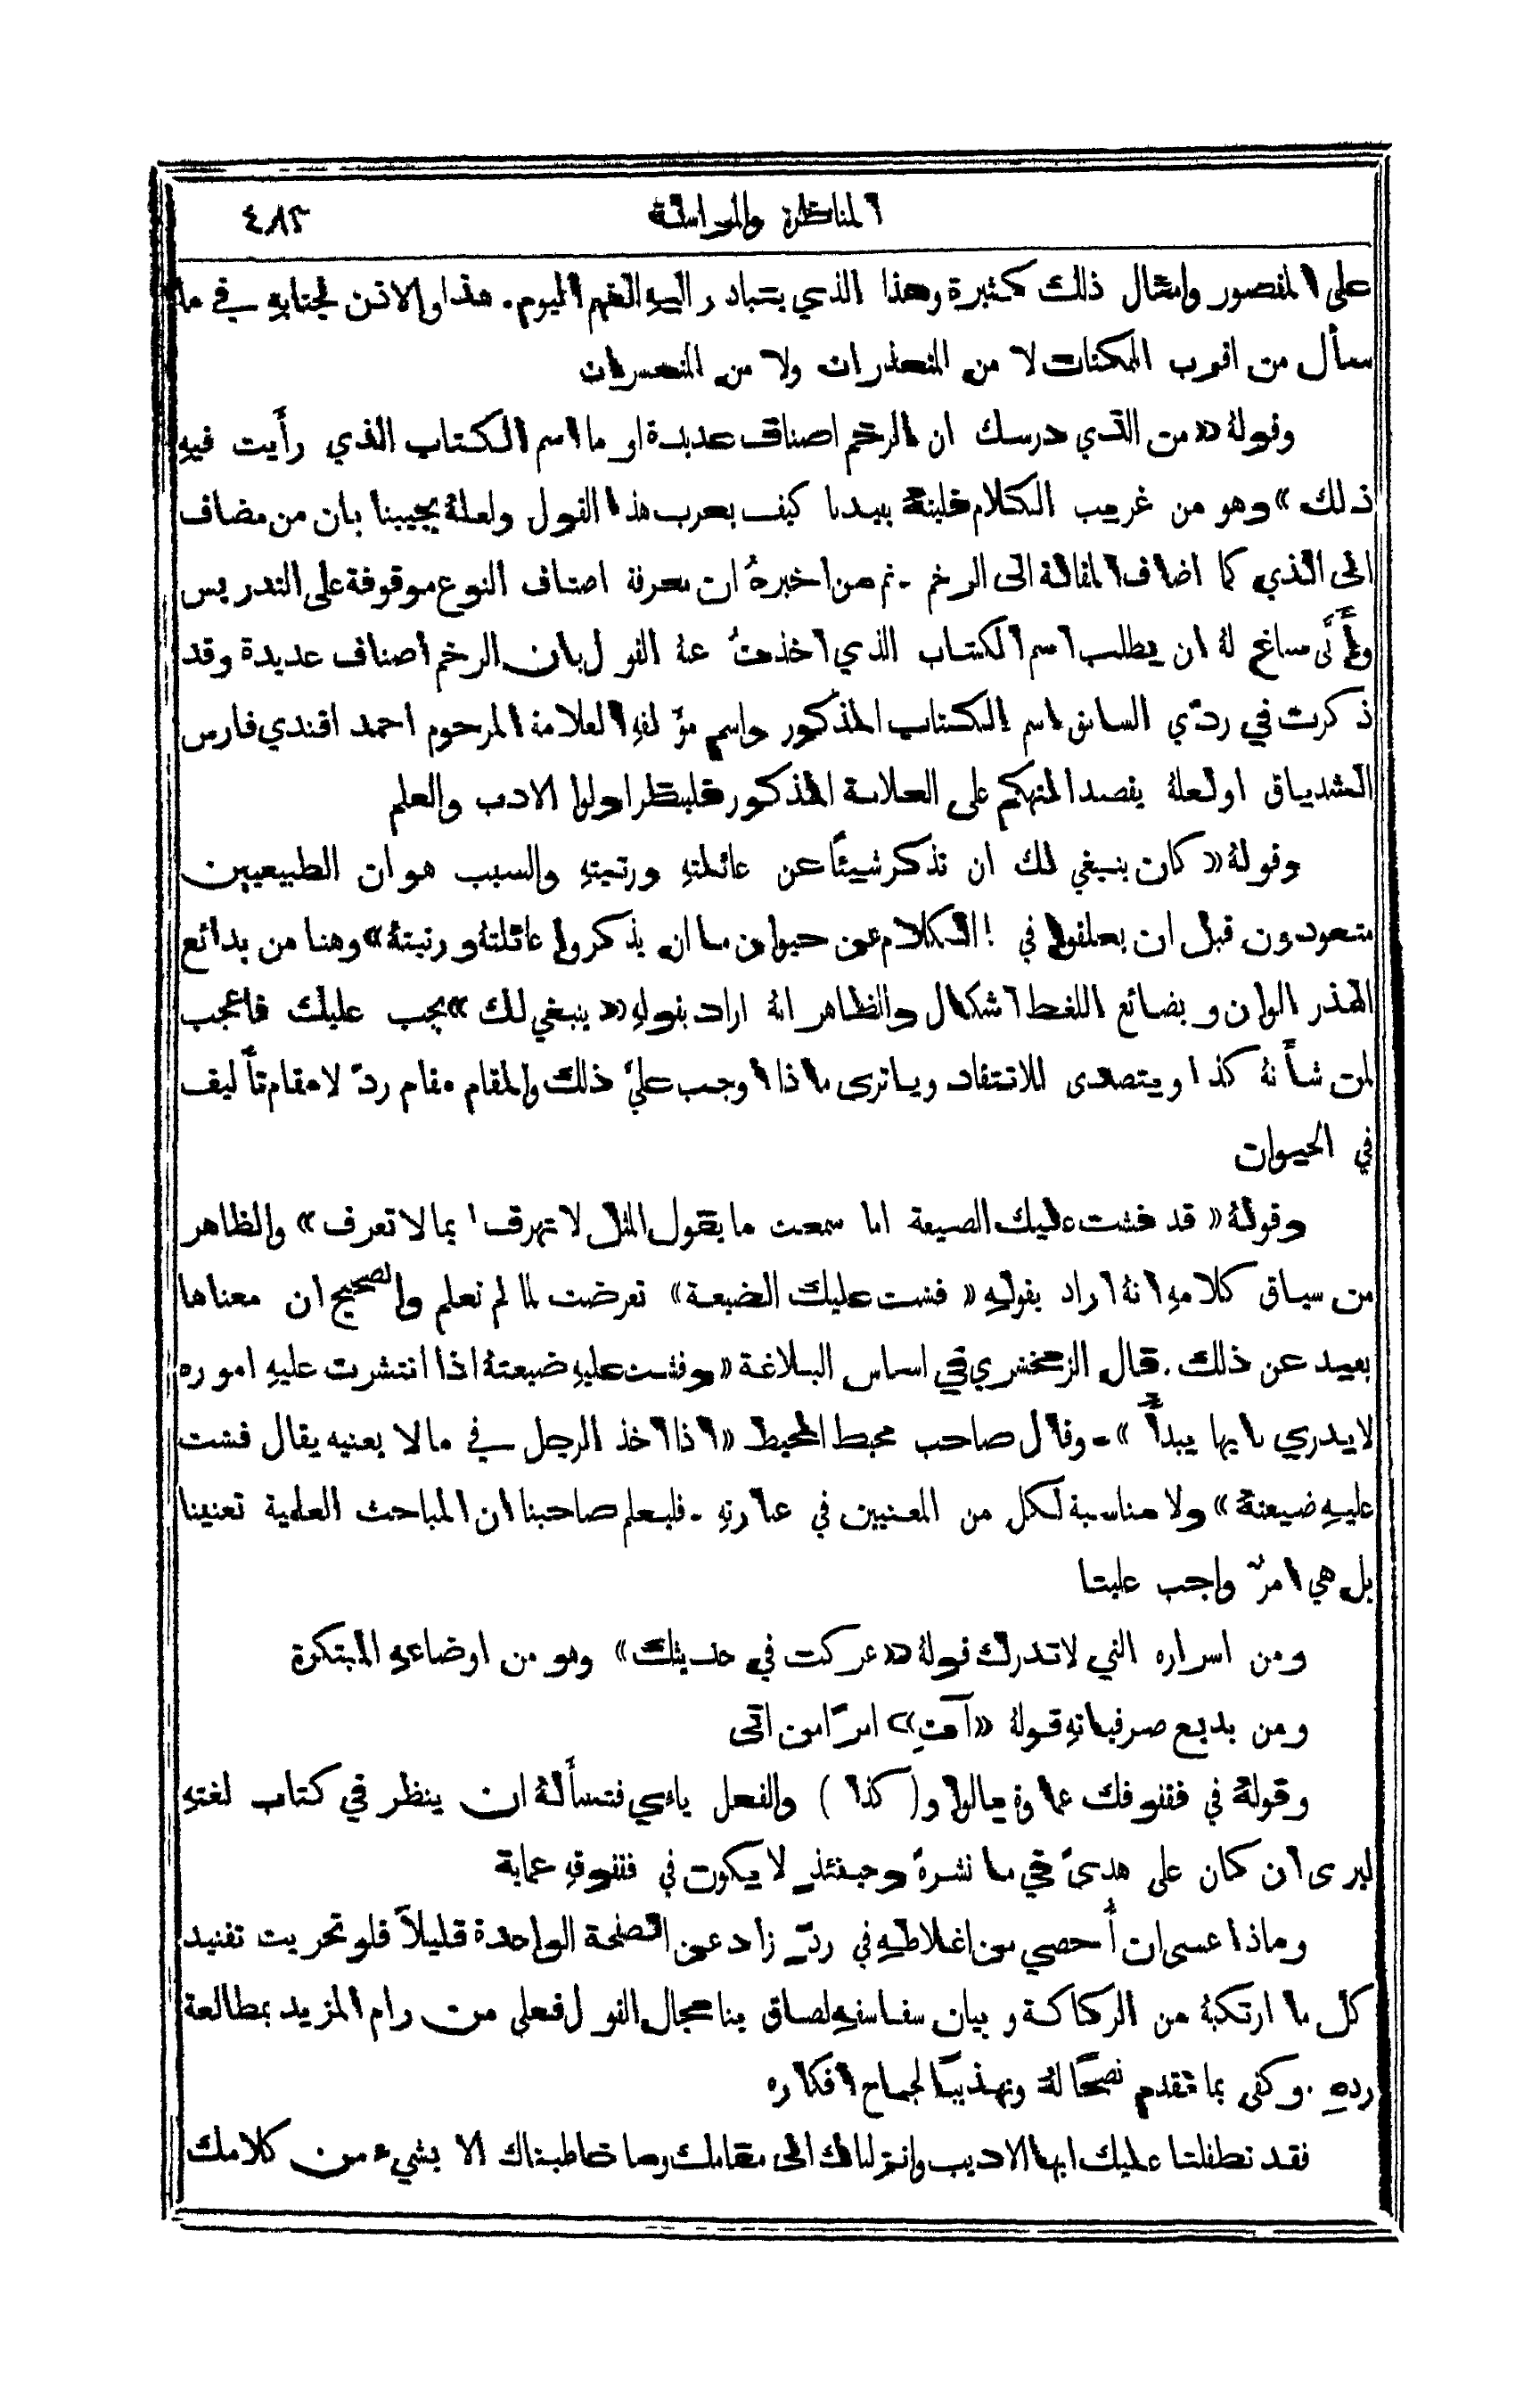 المناظرة والمراسلة ٤٨٣
على المقصور وامثال ذلك كثيرة وهذا الذي يتبادر اليهِ الفهم اليوم. هذا والاذن لجنابهِ في ما
سأل من اقرب الممكنات لا من المتعذرات ولا من المتعسرات
وقولهُ «من الذي درسك ان الرخم اصناف عديدة او ما اسم الكتاب الذي رأَيت فيهِ
ذلك» وهو من غريب الكلام فليتهُ يفيدنا كيف يعرب هذا القول ولعلهُ يجيبنا بان من مضاف
الى الذي كما اضاف المقالة الى الرخم ـ ثم من اخبرهُ ان معرفة اصناف النوع موقوفة على التدريس
وأَنَّى ساغ لهُ ان يطلب اسم الكتاب الذي اخذتُ عنهُ القول بان الرخم اصناف عديدة وقد
ذكرت في ردّي السابق اسم الكتاب المذكور واسم مؤَلفهِ العلامة المرحوم احمد افندي فارس
الشدياق او لعلهُ يقصد التهكم على العلامة المذكور فلينظر اولوا الادب والعلم
وقولهُ «كان ينبغي لك ان تذكر شيئًا عن عائلتهِ ورتبتهِ والسبب هو ان الطبيعيين
متعودون قبل ان يعلقوا في ! الكلام عن حيوان ما ان يذكروا عائلتهُ ورتبتهُ» وهنا من بدائع
الهذر الوان وبضائع اللغط اشكال والظاهر انهُ اراد بقولهِ «ينبغي لك» يجب عليك فاعجب
لمن شأنهُ كذا ويتصدى للانتقاد ويا ترى ماذا اوجب عليَّ ذلك والمقام مقام ردّ لا مقام تأليف
في الحيوان
وقولهُ «قد فشت عليك الضيعة اما سمعت ما يقول المثل لا تهرف ! بما لا تعرف» والظاهر
من سياق كلامهِ انهُ اراد بقولهِ «فشت عليك الضيعة» تعرضت لما لم تعلم والصحيح ان معناها
بعيد عن ذلك. قال الزمخشري في اساس البلاغة «وفشت عليهِ ضيعتهُ اذا انتشرت عليهِ اموره
لا يدري بايها يبدأُ» ـ وقال صاحب محيط المحيط «اذا اخذ الرجل في ما لا يعنيه يقال فشت
عليهِ ضيعتهُ» ولا مناسبة لكل من المعنيين في عبارتهِ ـ فليعلم صاحبنا ان المباحث العلمية تعنينا
بل هي امرٌ واجب علينا
ومن اسراره التي لا تدرك قولهُ «عركت في حديثك» وهو من اوضاعهِ المبتكرة
ومن بديع صرفياتهِ قولهُ «آتِ» امرًا من اتى
وقولهُ في فقنوفك عما وقيالوا و(كذا) والفعل يائي فنسألهُ ان ينظر في كتاب لغتهِ
ليرى ان كان على هدىً في ما نشرهُ وحينئذٍ لا يكون في فقنوفهِ عماية
وماذا عسى ان أُحصي من اغلاطهِ في ردّ زاد عن الصفحة الواحدة قليلاً فلو تحريت تفنيد
كل ما ارتكبهُ من الركاكة وبيان سفاسفهِ لضاق بنا مجال القول فعلى من رام المزيد بمطالعة
ردهِ. وكفى بما تقدم نصحًا لهُ وتهذيبًا لجماح افكاره
فقد تطفلنا عليك ايها الاديب وانزلناك الى مقامك وما خاطبناك الا بشيء من كلامك